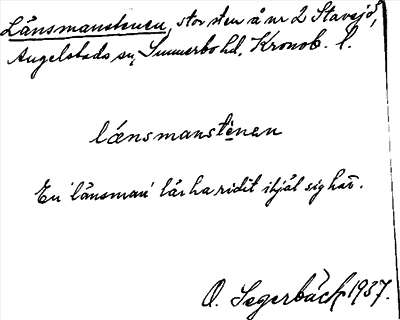 Länsmanstenen, stor sten å nr 2 Stavsjö,
Angelstads sn, Sunnerbo hd, Kronob. l.
länsmansténen
En 'länsman' lär ha ridit ihjäl sig här.
O. Segerbäck 1937.